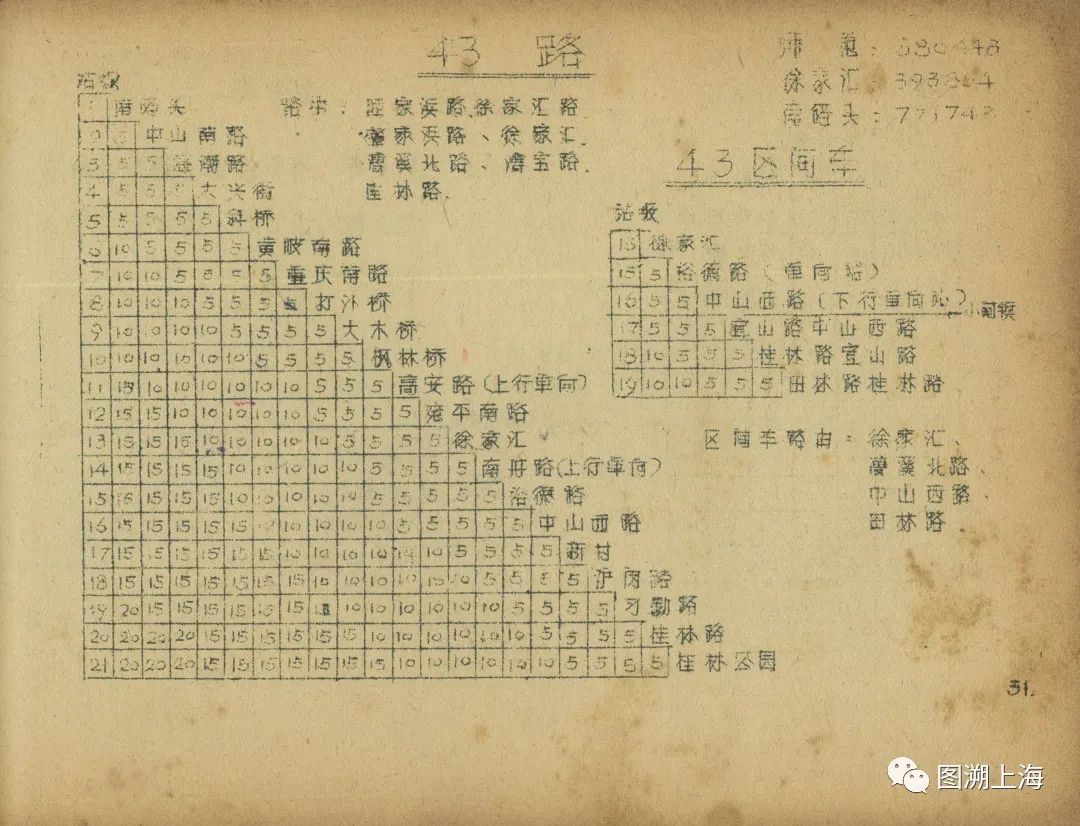 43 路
站级
1 南码头
路由：陆家浜路、徐家汇路、
肇家浜路、徐家汇、
漕溪北路、漕宝路、
桂林路.
中山南路
路
4 5 5 5 大兴街
5 5 5 5 5 斜桥
6 10 5 5 5 5 黄陂南路
7 10 10 5 5 5 5 重庆南路
8 10 10 10 5 5 5 打浦桥
9 10 10 10 10 5 5 5 5 大木桥
10 10 10 10 10 10 5 5 5 5 枫林桥
11 15 10 10 10 10 10 10 5 5 5 高安路（上行单向）
12 15 15 10 10 10 10 10 5 5 5 5 宛平南路
13 15 15 15 10 10 10 10 10 5 5 5 5 徐家汇
14 15 15 15 15 10 10 10 10 10 5 5 5 5 南丹路（上行单向）
15 15 15 15 15 10 10 10 10 10 5 5 5 5 5 裕德路
16 15 15 15 15 15 10 10 10 10 5 5 5 5 5 中山西路
17 15 15 15 15 15 15 10 10 10 10 10 5 5 5 5 新村
18 15 15 15 15 15 15 15 10 10 10 10 10 10 5 5 5 5 沪闵路
19 20 15 15 15 15 15 15 10 10 10 10 10 10 5 5 5 5 习勤路
20 20 20 20 15 15 15 15 15 15 10 10 10 10 10 10 5 5 5 5 桂林路
21 20 20 20 15 15 15 15 15 15 15 10 10 10 10 10 10 5 5 5 5 桂林公园
徐家汇
南码头：
43 区间车
站级
徐家汇
15 5 裕德路（单向站）
16 5 5 中山西路（下行单向站）
小闸镇
17 5 5 5 宜山路中山西路
18 10 5 5 5 桂林路宜山路
19 10 10 5 5 5 田林路桂林路
区间车路由：徐家汇、
漕溪北路、
中山西路、
田林路
31.
图溯上海